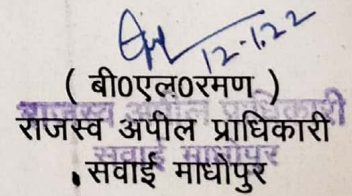 12-1-22
( बी0एल0रमण )
राजस्व अपील प्राधिकारी
सवाई माधोपुर